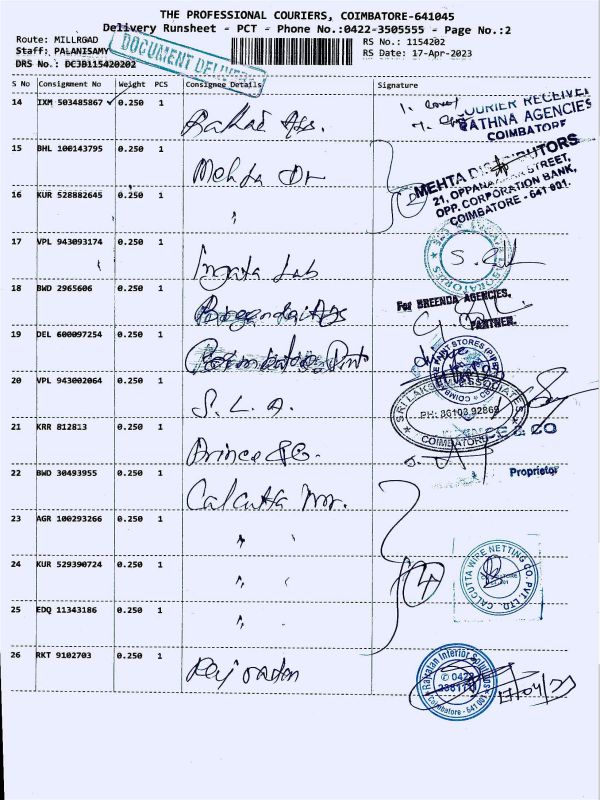 THE PROFESSIONAL COURIERS, COIMBATORE-641045
Delivery Runsheet - PCT - Phone No.:0422-3505555 - Page No.:2
Route: MILLRGAD
RS No.: 1154202
Staff: PALANISAMY
RS Date: 17-Apr-2023
DRS No.: DCJB115420202
DOCUMENT
S No Consignment No Weight PCS Consignee Details Signature
14 IXM 503485867 0.250 1
COURIER RECEIVED
RATHNA AGENCIES
COIMBATORE
15 BHL 100143795 0.250 1 Mehta Dr
MEHTA DISTRIBUTORS
STREET,
OPP. CORPORATION BANK,
COIMBATORE - 641 001.
16 KUR 528882645 0.250 1 "
2
17 VPL 943093174 0.250 1 Lab
S.
18 BWD 2965606 0.250 1
For BREENDA AGENCIES.
PARTNER.
19 DEL 600097254 0.250 1
20 VPL 943002064 0.250 1 S. L. A.
SRI LAKSHMI ASSOCIATES
PH: 86103 92869
COIMBATORE
21 KRR 812813 0.250 1 Prince &
& CO
Proprietor
22 BWD 30493955 0.250 1 Calcutta
23 AGR 100293266 0.250 1 " "
24 KUR 529390724 0.250 1 " "
4
CALCUTTA WIRE NETTING CO. PVT. LTD.
25 EDQ 11343186 0.250 1 " "
26 RKT 9102703 0.250 1
Rajratan Interior Solutions
0422
Coimbatore - 641 001
17/04/23